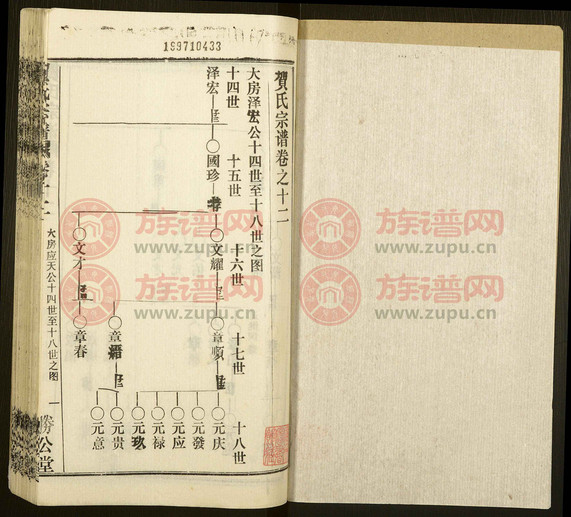 199710433
賀氏宗谱卷之十二
大房泽宏公十四世至十八世之图
十四世
十五世
十六世
十七世
十八世
泽宏
國珍
文耀
文才
章順
章
章春
元庆
元發
元应
元禄
元玖
元贵
元意
大房应天公十四世至十八世之图
一
公堂
族谱网
www.zupu.cn
族谱网
www.zupu.cn
族谱网
www.zupu.cn
族谱网
www.zupu.cn